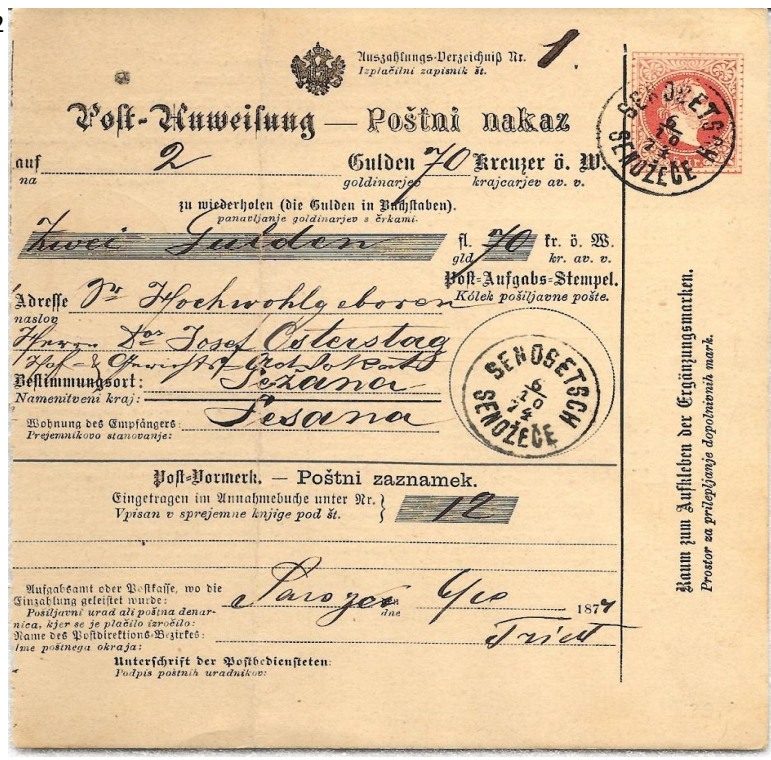 2
Auszahlungs-Verzeichniß Nr. 1.
Izplačilni zapisnik št.
Post-Anweisung — Poštni nakaz
auf 2 Gulden 70 Kreuzer ö. W.
na goldinarjev krajcarjev av. v.
zu wiederholen (die Gulden in Buchstaben).
panavljanje goldinarjev s črkami.
Zwei Gulden fl. 70 kr. ö. W.
gld. kr. av. v.
Post-Aufgabs-Stempel.
Kólek pošiljavne pošte.
Adresse Sr Hochwohlgeboren
naslov
Herrn Dor Josef Osterstag
Hof- & Gerichts-Advokat
Bestimmungsort: Sežana
Namenitveni kraj:
Wohnung des Empfängers: Sesana
Prejemnikovo stanovanje:
SENOSETSCH
6
10
74
SENOŽEČE
Post-Vormerk. — Poštni zaznamek.
Eingetragen im Annahmebuche unter Nr. 12
Vpisan v sprejemne knjige pod št.
Aufgabsamt oder Postkasse, wo die
Einzahlung geleistet wurde:
Pošiljavni urad ali poštna denar-
nica, kjer se je plačilo izročilo:
dne 6/10 1874
Name des Postdirektions-Bezirkes: Triest
Ime poštnega okraja:
Unterschrift der Postbediensteten:
Podpis poštnih uradnikov:
SENOSETSCH
6
10
74
SENOŽEČE
Raum zum Aufkleben der Ergänzungsmarken.
Prostor za prilepljanje dopolnivnih mark.